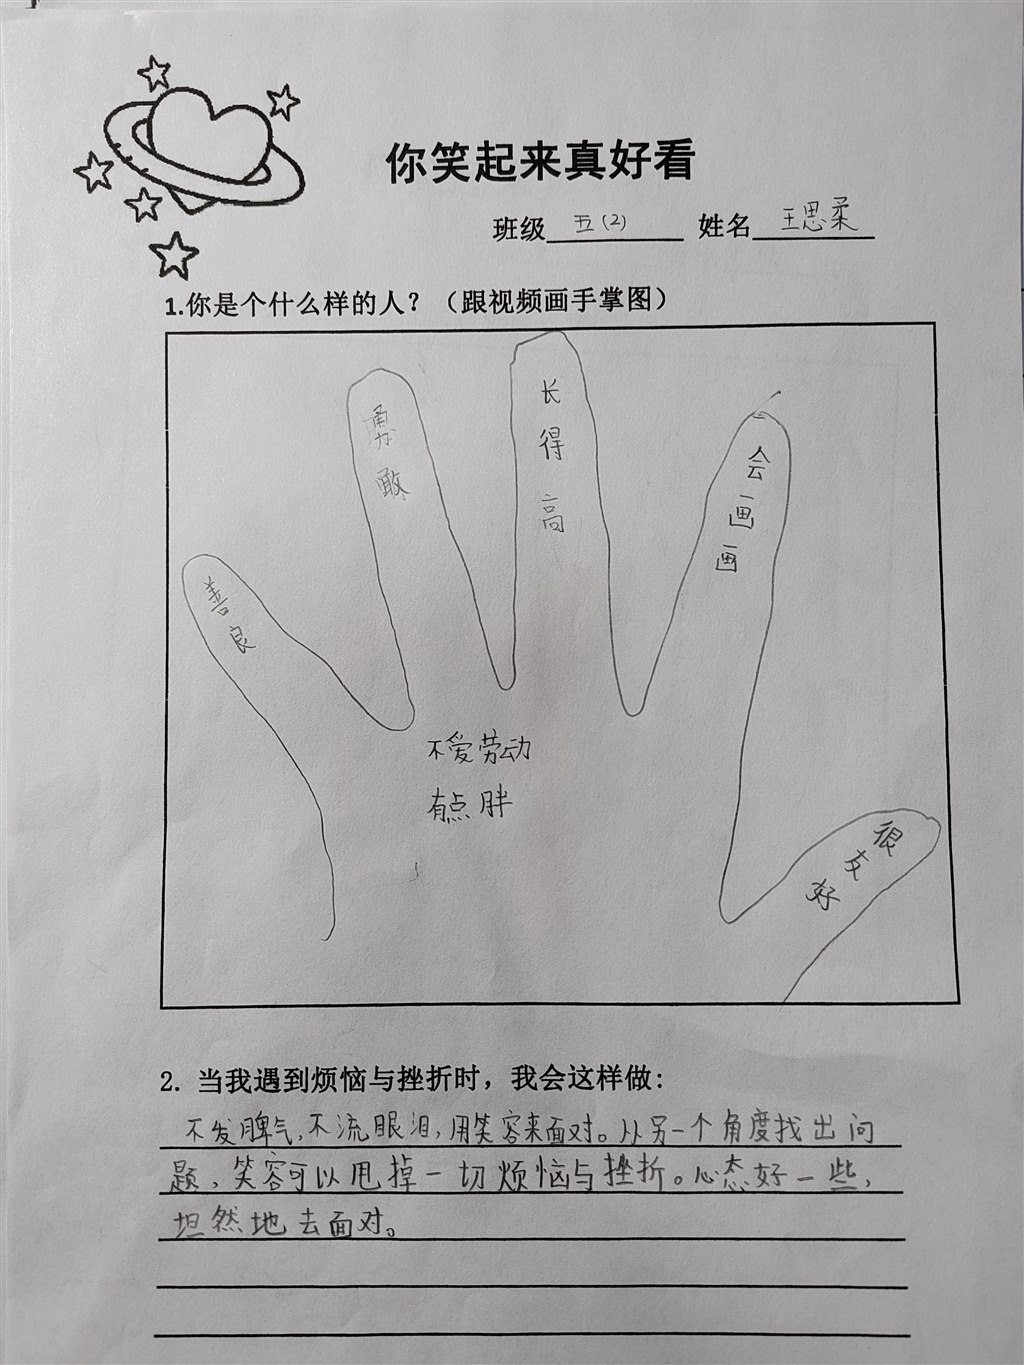 你笑起来真好看
班级 五(2) 姓名 王思柔
1.你是个什么样的人？（跟视频画手掌图）
善良
勇敢
长得高
会画画
很友好
不爱劳动
有点胖
2. 当我遇到烦恼与挫折时，我会这样做:
不发脾气,不流眼泪,用笑容来面对。从另一个角度找出问
题,笑容可以甩掉一切烦恼与挫折。心态好一些,
坦然地去面对。